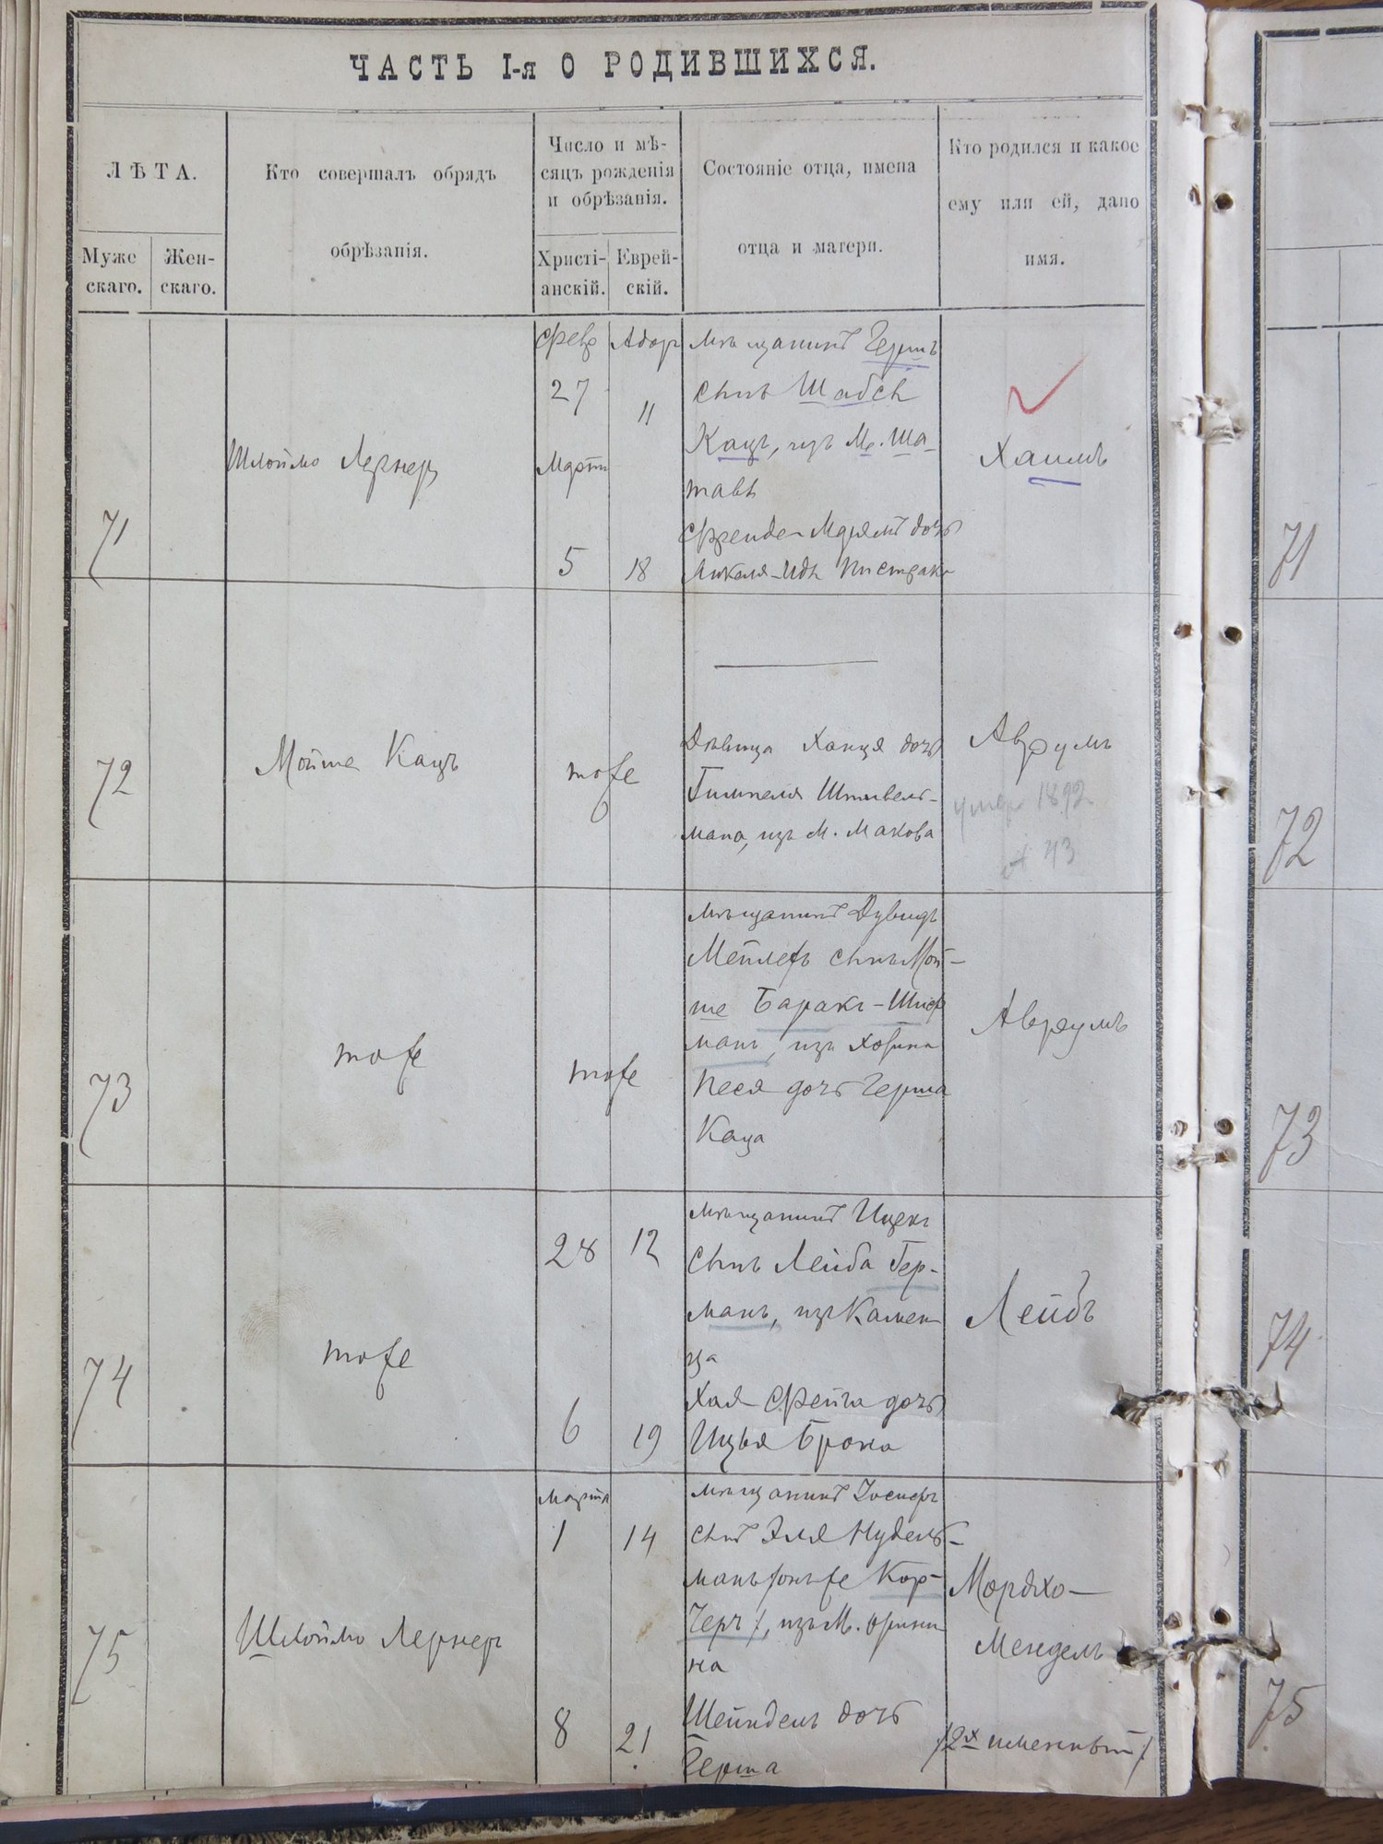 ЧАСТЬ I-я О РОДИВШИХСЯ.
ЛѢТА.
Муже
скаго.
Жен-
скаго.
Кто совершалъ обрядъ
обрѣзанія.
Число и мѣ-
сяцъ рожденія
и обрѣзанія.
Христі-
анскій.
Еврей-
скій.
Состояніе отца, имена
отца и матери.
Кто родился и какое
ему или ей, дано
имя.
71
Шлойма Лернеръ
Февр
27
Март
5
Адар
11
18
мѣщанинъ Гершъ
сынъ Шабси
Кацъ, изъ М. Ша-
тавы
Фрейда-Марьямъ дочь
Хаимъ
71
72
Мойше Кацъ
тоже
Дѣвица Ханця дочь
Гимпеля Штивель-
мана, изъ М. Макова
Аврумъ
умеръ 1892
№ 43
72
73
тоже
тоже
мѣщанинъ Дувидъ
Мейлехъ сынъ Мой-
ше Баракъ-Шиф
манъ, изъ
Песя дочь Герша
Каца
Авраумъ
73
74
тоже
28
6
12
19
мѣщанинъ Ицекъ
сынъ Лейба Гер-
манъ, изъ Камен
ца
Хая Фейга дочь
Ицька Брона
Лейбъ
74
75
Шлойма Лернеръ
Марта
1
8
14
21
мѣщанинъ Іосифъ
сынъ Эля Нудель-
манъ /онъ же Кор-
черъ/, изъ М. Орини
на
Шейндель дочь
Герша
Мордхо-
Мендель
/2х именный/
75